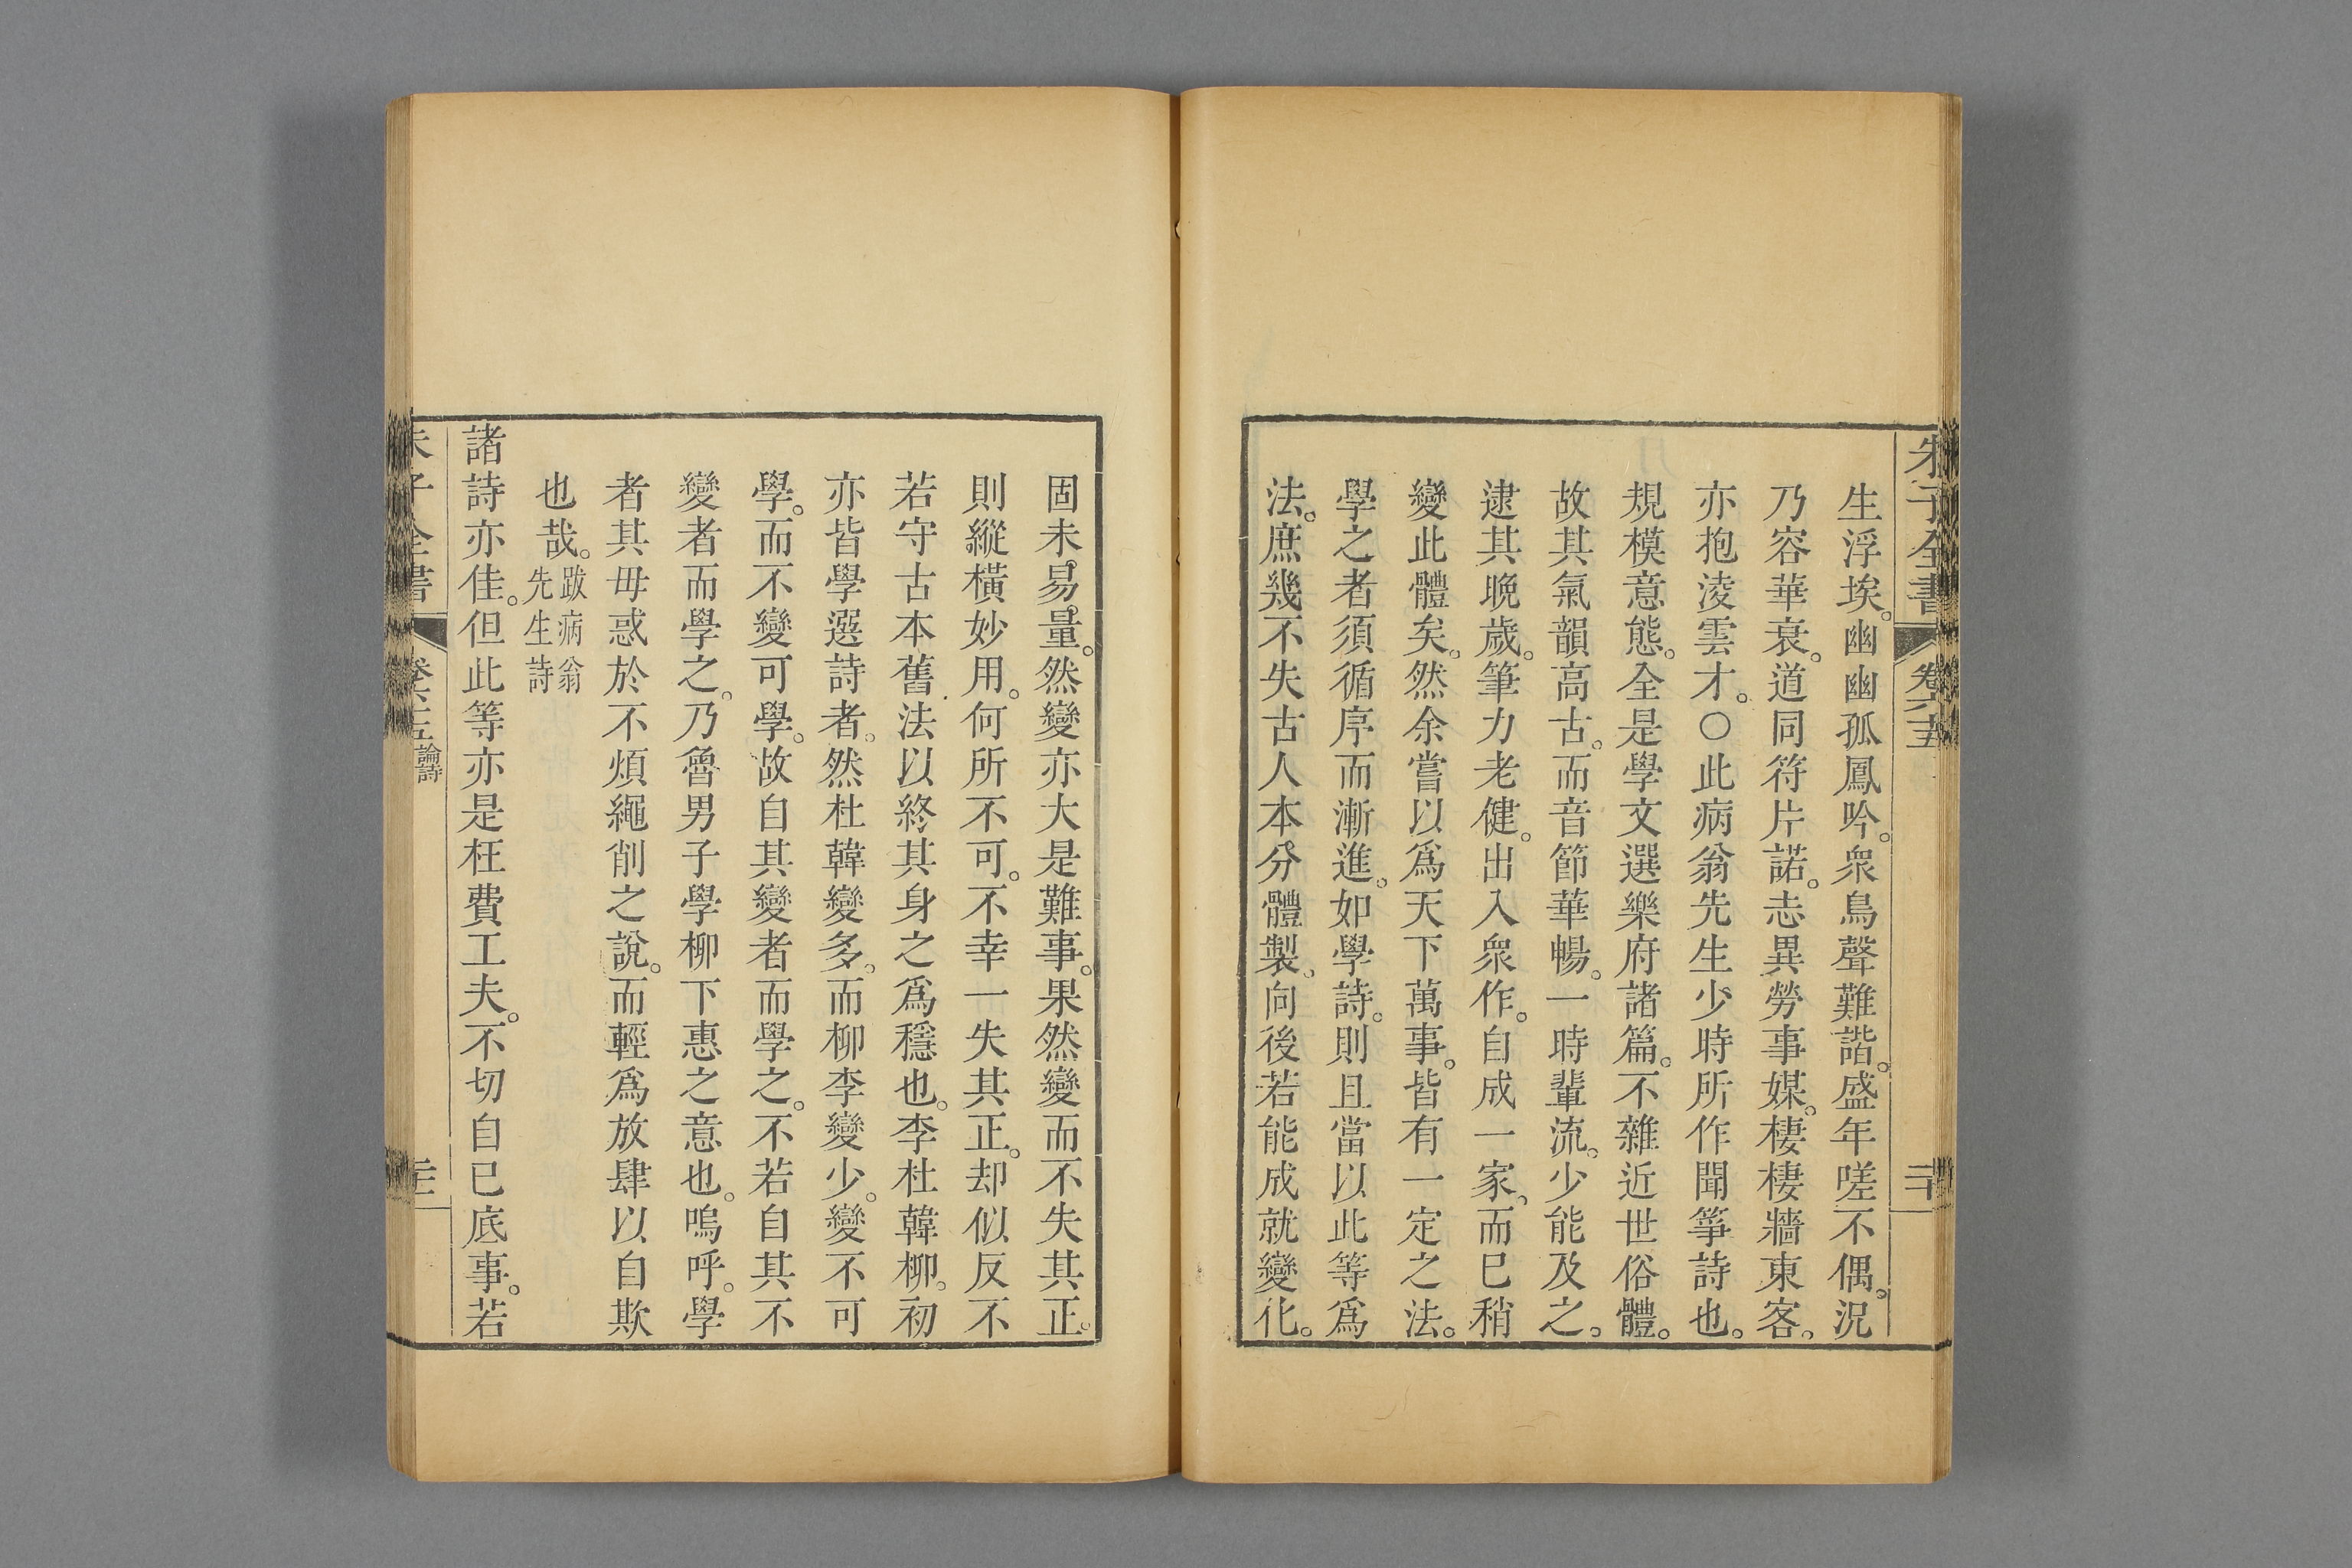 朱子全書 卷六十五 二十
生浮埃。幽幽孤鳳吟。衆鳥聲難諧。盛年嗟不偶。況
乃容華衰。道同符片諾。志異勞事媒。棲棲牆東客。
亦抱淩雲才。○此病翁先生少時所作聞箏詩也。
規模意態。全是學文選樂府諸篇。不雜近世俗體。
故其氣韻高古。而音節華暢。一時輩流。少能及之。
逮其晚歲。筆力老健。出入衆作。自成一家。而已稍
變此體矣。然余嘗以爲天下萬事。皆有一定之法。
學之者須循序而漸進。如學詩。則且當以此等爲
法。庶幾不失古人本分體製。向後若能成就變化。
固未易量。然變亦大是難事。果然變而不失其正。
則縱橫妙用。何所不可。不幸一失其正。却似反不
若守古本舊法以終其身之爲穩也。李杜韓柳。初
亦皆學選詩者。然杜韓變多。而柳李變少。變不可
學。而不變可學。故自其變者而學之。不若自其不
變者而學之。乃魯男子學柳下惠之意也。嗚呼。學
者其毋惑於不煩繩削之說。而輕爲放肆以自欺
也哉。跋病翁先生詩
諸詩亦佳。但此等亦是枉費工夫。不切自已底事。若
朱子全書 卷六十五 論詩